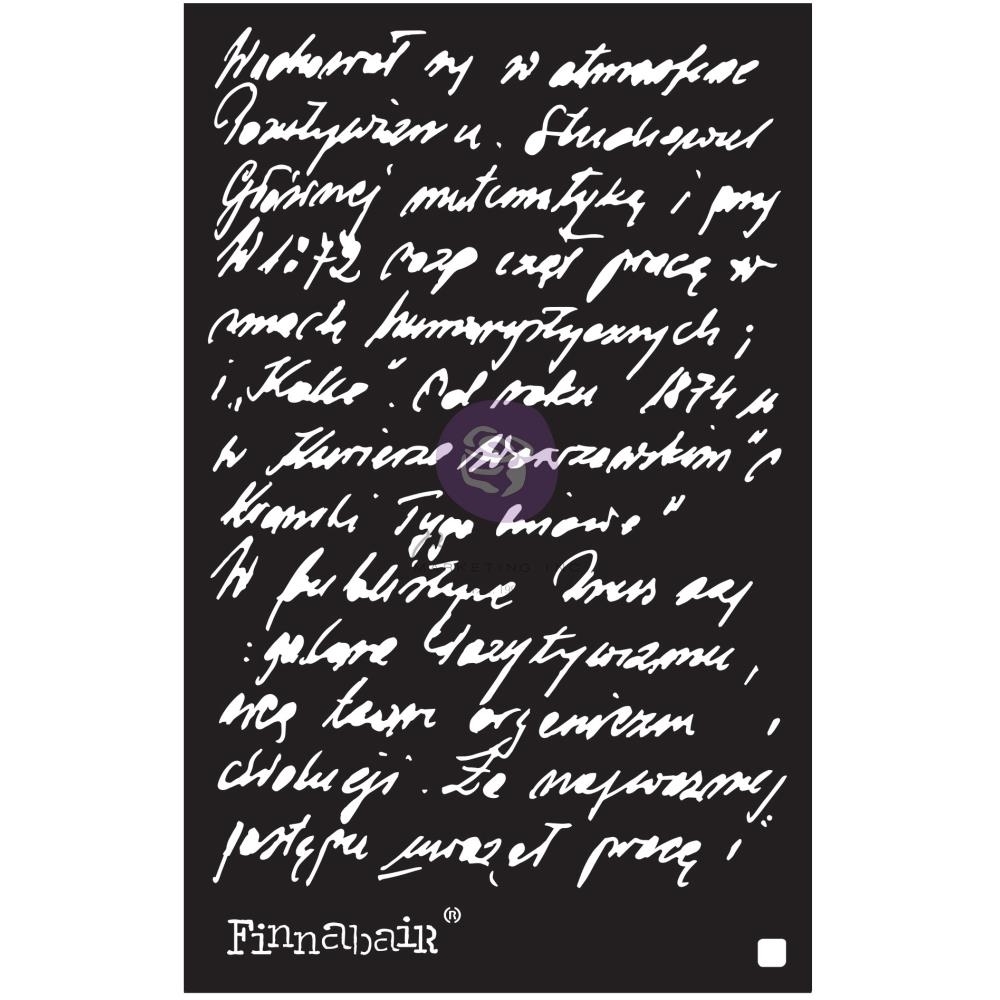 Wychował się w atmosferze
Pozytywizmu. Studiował
Głównej matematykę i przy
W 1872 rozpoczął pracę w
smach humorystycznych ;
i „Kolce". Od roku 1874 w
w Kurierze Warszawskim" o
Kronki Tygodniowe"
W publicystyce
: pozytywizmu,
organizm i
ewolucji. Za najważniej
postępu uważał pracę i
Finnabair (R)
MARKETING INC